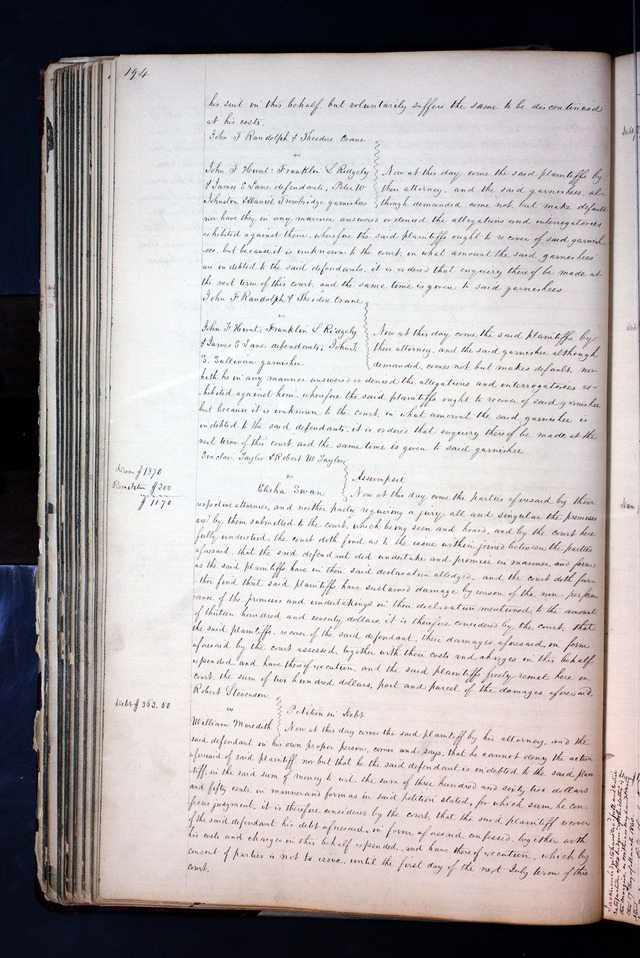 194
his suit in this behalf but voluntarily suffers the same to be discontinued
at his costs.
John F Randolph & Theodore Crane
vs
John F Hunt, Franklin L Ridgely
& James S Lane defendants, Peter W
Johnston & Daniel Trowbridge garnishees
Now at this day come the said plaintiffs by
their attorney, and the said garnishees, al-
though demanded come not but make default
nor have they in any manner answered or denied the allegations and interrogatories
exhibited against them, wherefore the said plaintiffs ought to recover of said garnish
ees, but because it is unknown to the court, in what amount the said garnishees
are indebted to the said defendants, it is ordered that enquiry thereof be made at
the next term of this court, and the same time is given to said garnishees
John F Randolph & Theodore Crane
vs
John F Hunt, Franklin L Ridgely
& James S Lane defendants, John T.
S. Sullivan garnishee
Now at this day come the said plaintiffs by
their attorney, and the said garnishee although
demanded, comes not but makes default, nor
hath he in any manner answered or denied the allegations and interrogatories ex-
hibited against him, wherefore the said plaintiffs ought to recover of said garnishee
but because it is unknown to the court, in what amount the said garnishee is
indebted to the said defendants, it is ordered that enquiry thereof be made at the
next term of this court and the same time is given to said garnishee
Sinclair Taylor & Robert W Taylor
vs
Elisha Swan
Assumpsit
Dam $1370
Remittitur $200
$1170
Now at this day come the parties aforesaid by their
respective attornies, and neither party requiring a jury, all and singular the premises
are by them submitted to the court, which being seen and heard, and by the court here
fully understood, the court doth find as to the issue within joined between the parties
aforesaid, that the said defendant did undertake and promise in manner and form
as the said plaintiffs have in their said declaration alledged, and the court doth fur
ther find that said plaintiffs have sustained damage by reason of the non perform
ance of the promises and undertakings in their declaration mentioned, to the amount
of thirteen hundred and seventy dollars, it is therefore considered by the court, that
the said plaintiffs, recover of the said defendant, their damages aforesaid, in form
aforesaid by the court assessed, together with their costs and charges in this behalf
expended, and have thereof execution, and the said plaintiffs freely remit here in
court, the sum of two hundred dollars, part and parcel of the damages aforesaid.
Robert Stevenson
vs
William Meredith
Petition in Debt
Debt $362.50
Now at this day comes the said plaintiff by his attorney, and the
said defendant in his own proper person, comes and says, that he cannot deny the action
aforesaid of said plaintiff, nor but that he the said defendant is indebted to the said plain
tiff, in the said sum of money to wit, the sum of three hundred and sixty two dollars
and fifty cents, in manner and form as in said petition stated, for which sum, he con
fesses judgment, it is therefore considered by the court, that the said plaintiff recover
of the said defendant his debt aforesaid, in form aforesaid confessed, together with
his costs and charges in this behalf expended, and have thereof execution, which by
consent of parties is not to issue, until the first day of the next July term of this
court.